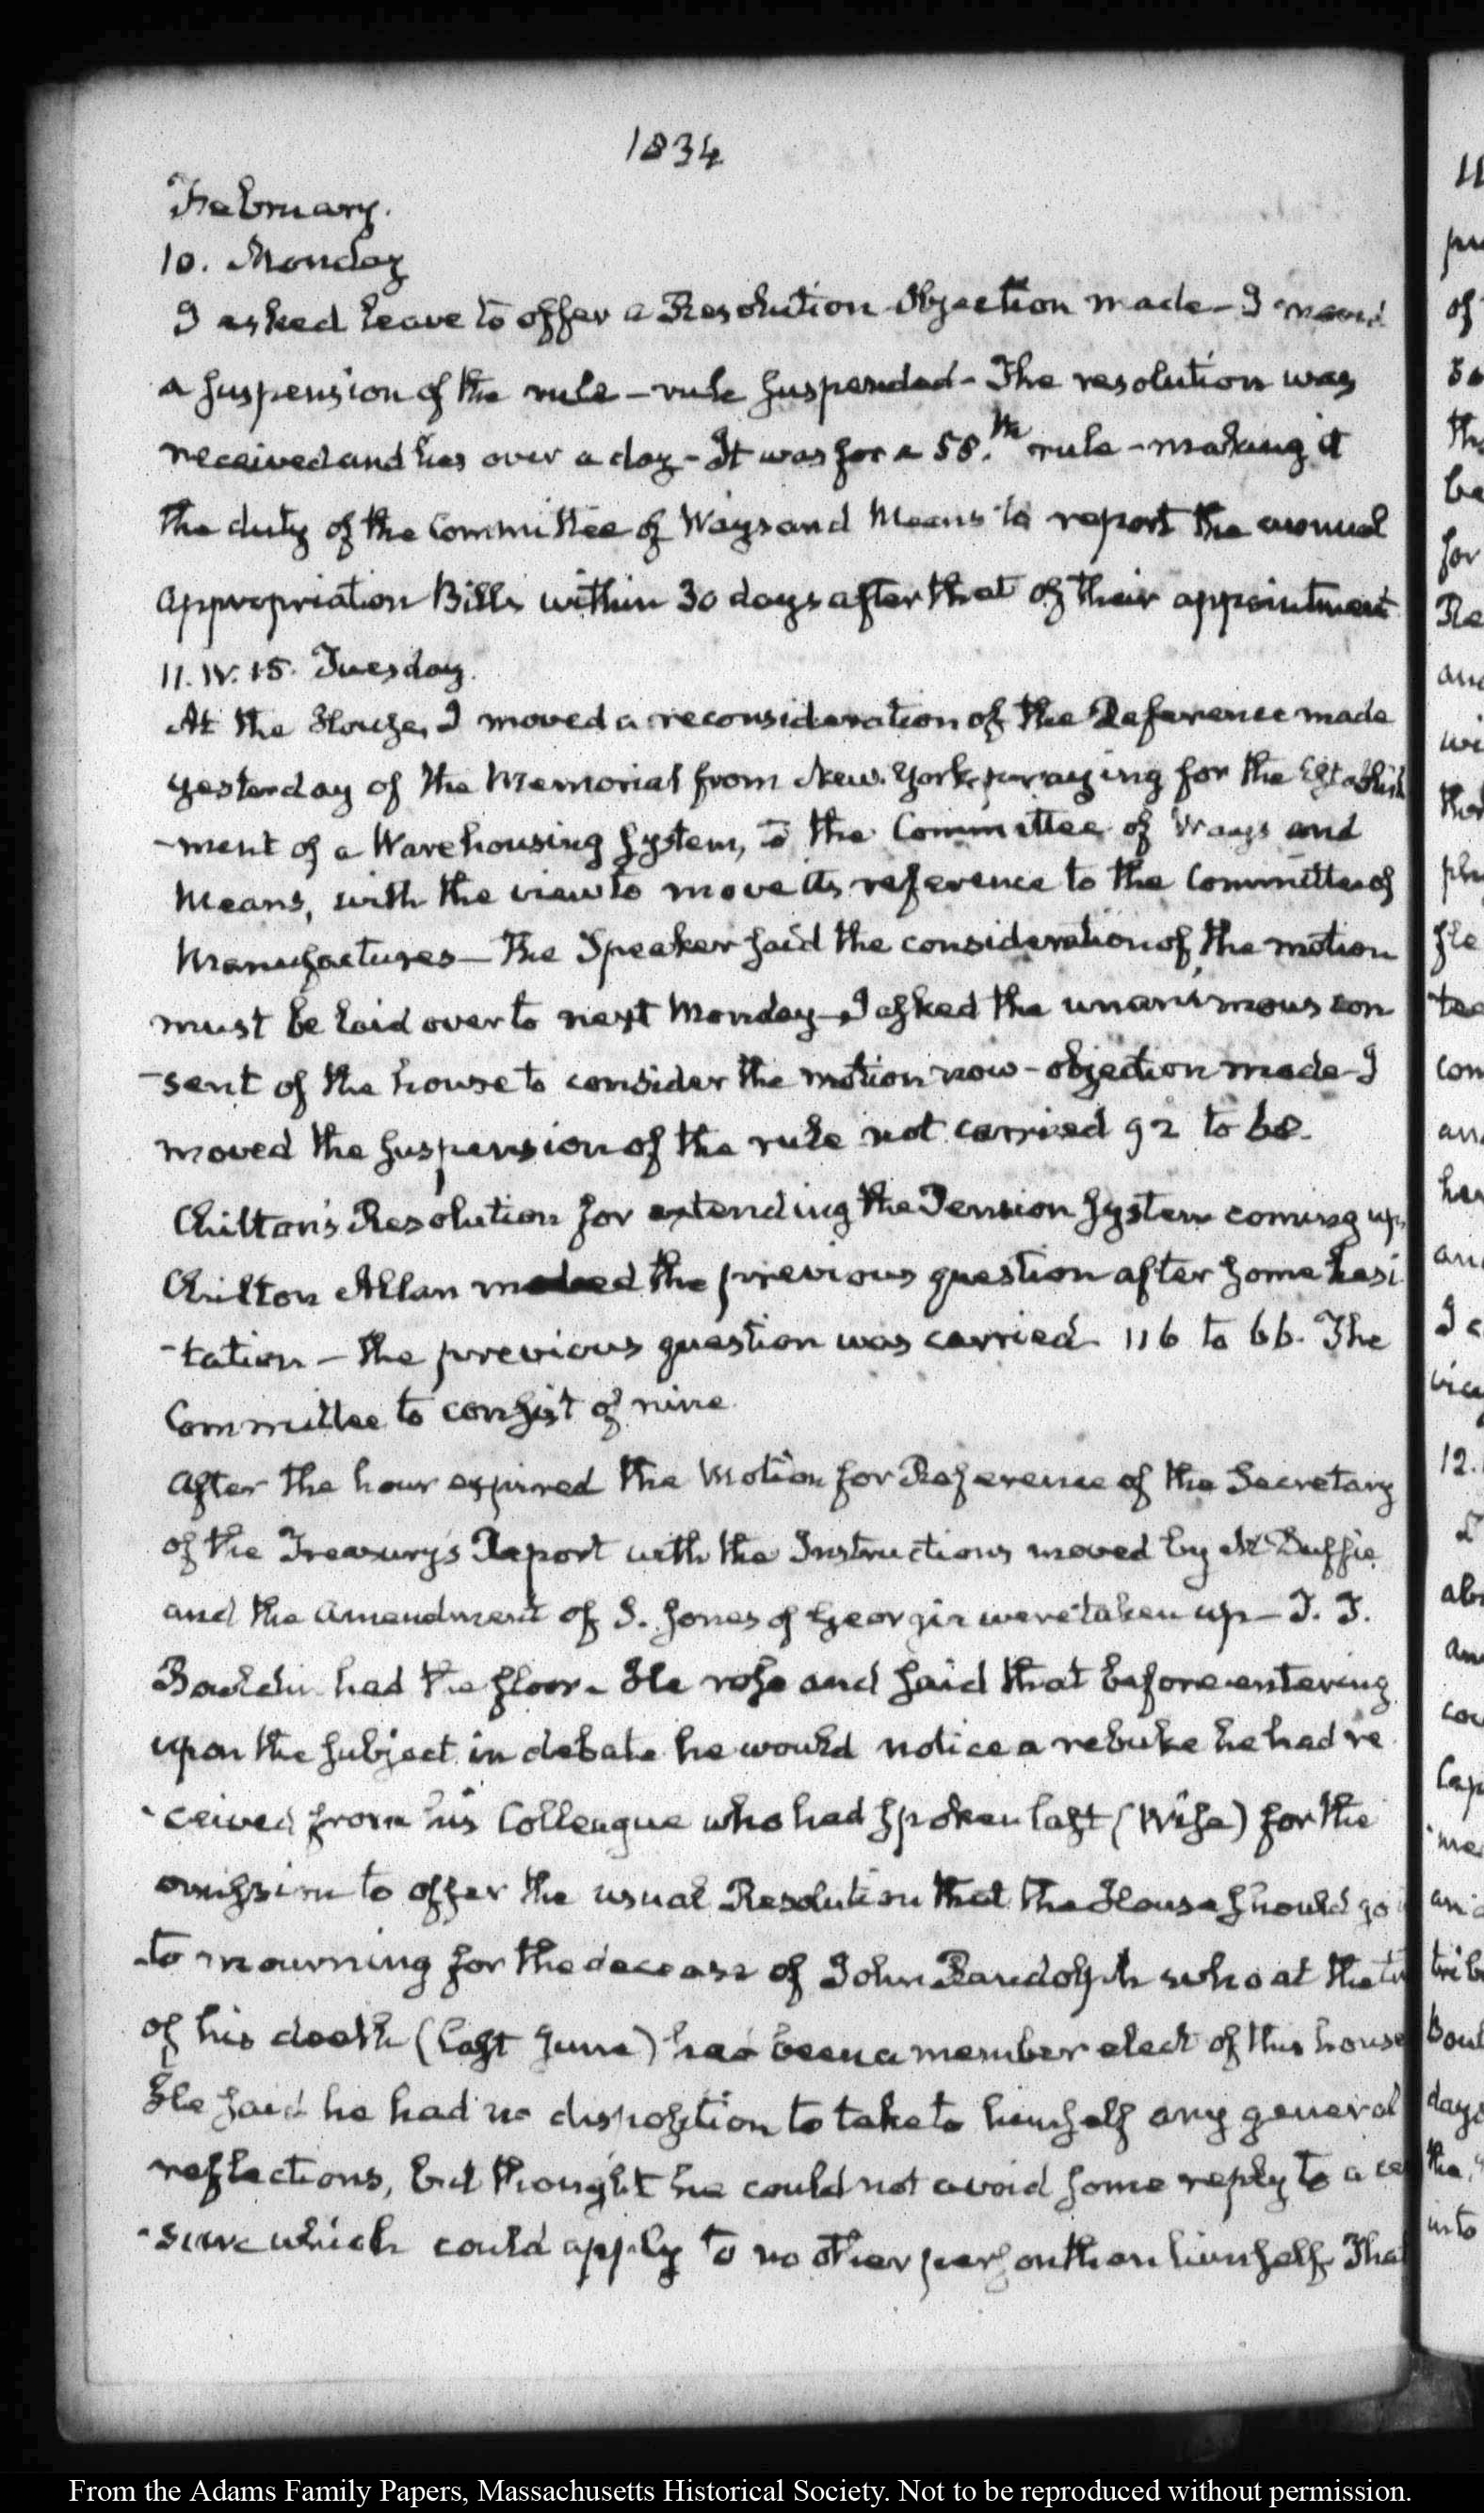 1834
February.
10. Monday
I asked leave to offer a Resolution Objection made - I moved
a suspension of the rule - rule suspended - The resolution was
received and lies over a day - It was for a 58.th rule - making it
the duty of the Committee of Ways and Means to report the annual
Appropriation Bills within 30 days after that of their appointment
11. IV. 15. Tuesday.
At the House, I moved a reconsideration of the Reference made
yesterday of the Memorial from New York, praying for the Establish
-ment of a Warehousing System, to the Committee of Ways and
Means, with the view to move its reference to the Committee of
Manufactures - The Speaker said the consideration of the motion
must be laid over to next Monday - I asked the unanimous con
-sent of the house to consider the motion now - objection made - I
moved the suspension of the rule not carried 92 to 68.
Chilton's Resolution for extending the Pension System coming up,
Chilton Allan moved the previous question after some hesi
-tation - the previous question was carried 116 to 66. The
Committee to consist of nine.
After the hour expired the Motion for Reference of the Secretary
of the Treasury's Report with the Instructions moved by McDuffie
and the Amendment of S. Jones of Georgia were taken up - T. T.
Bouldin had the floor - He rose and said that before entering
upon the subject in debate he would notice a rebuke he had re
-ceived from his Colleague who had spoken last (Wise) for the
omission to offer the usual Resolution that the House should go
to mourning for the decease of John Randolph who at the
of his death (last June) had been a member elect of this house
He said he had no disposition to take to himself any general
reflections, but thought he could not avoid some reply to a ce
-sure which could apply to no other person than himself. That
From the Adams Family Papers, Massachusetts Historical Society. Not to be reproduced without permission.